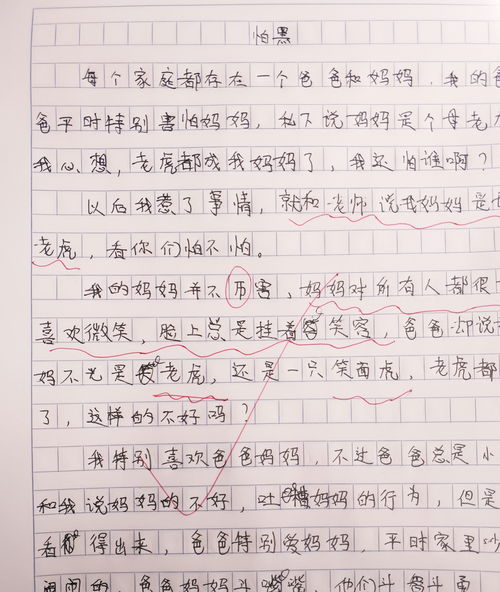 怕黑
每个家庭都存在一个爸爸和妈妈，我的爸
爸平时特别害怕妈妈，私下说妈妈是个母老
我心想，老虎都成我妈妈了，我还怕谁啊？
以后我惹了事情，就和老师说我妈妈是母
老虎，看你们怕不怕。
我的妈妈并不历害，妈妈对所有人都很
喜欢微笑，脸上总是挂着笑容，爸爸却说
妈不光是老虎，还是一只笑面虎，老虎都
了，这样的不好吗？
我特别喜欢爸爸妈妈，不过爸爸总是小
和我说妈妈的不好，吐槽妈妈的行为，但是
看得出来，爸爸特别爱妈妈，平时家里吵
闹闹的，爸爸妈妈斗嘴，他们斗智斗勇